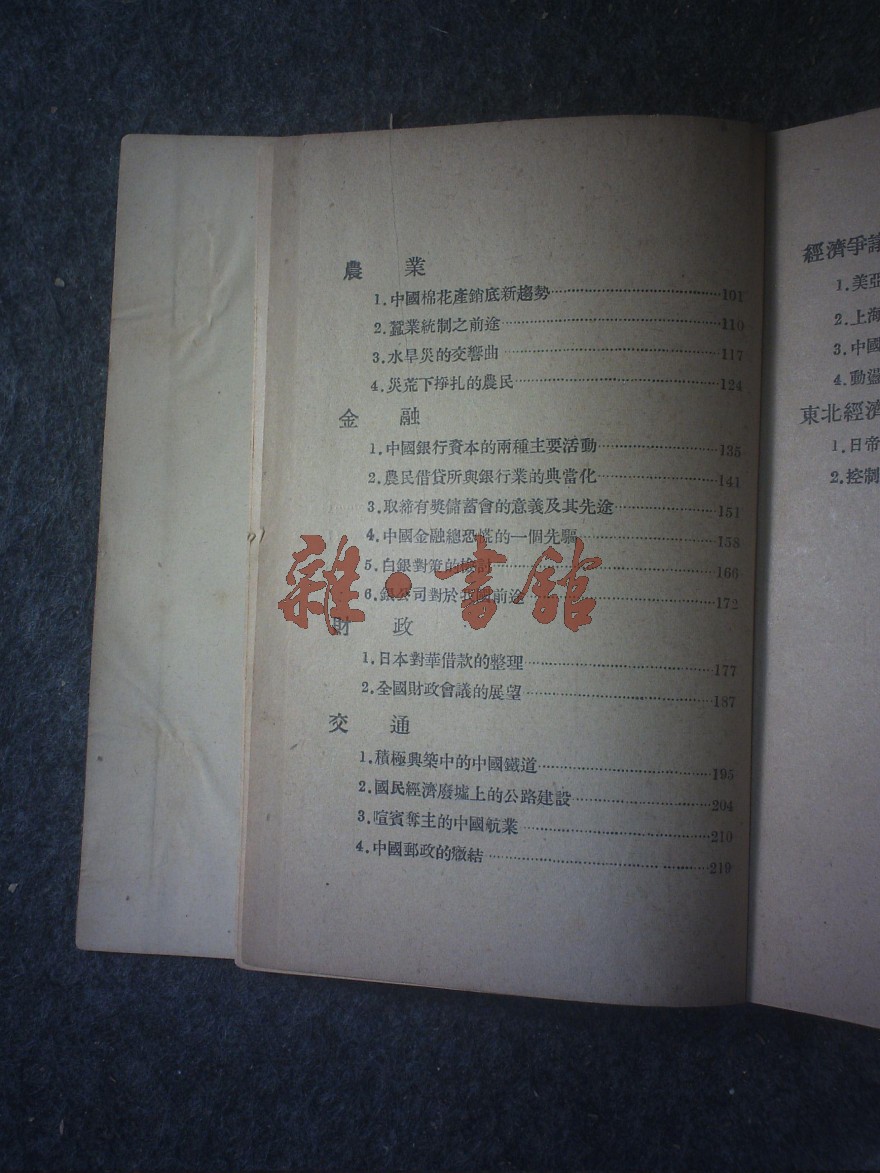 農 業
1.中國棉花產銷底新趨勢 101
2.蠶業統制之前途 110
3.水旱災的交響曲 117
4.災荒下掙扎的農民 124
金 融
1.中國銀行資本的兩種主要活動 135
2.農民借貸所與銀行業的典當化 141
3.取締有獎儲蓄會的意義及其先途 151
4.中國金融總恐慌的一個先驅 158
5.白銀對策的檢討 166
6.銀公司對於我國前途 172
財 政
1.日本對華借款的整理 177
2.全國財政會議的展望 187
交 通
1.積極興築中的中國鐵道 195
2.國民經濟廢墟上的公路建設 204
3.喧賓奪主的中國航業 210
4.中國郵政的癥結 219
雜·書館
經濟爭議
1.美亞
2.上海
3.中國
4.動盪
東北經濟
1.日帝
2.控制